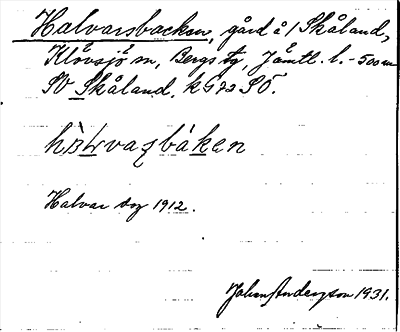 Halvarsbacken, gård å /Skåland,
Klövsjö sn, Bergs tg, Jämtl. l. - 500 m
SV Skåland. k G 22 SO.
hàlvaʂbàken
Halvar dog 1912.
Johan Anderzson 1931.